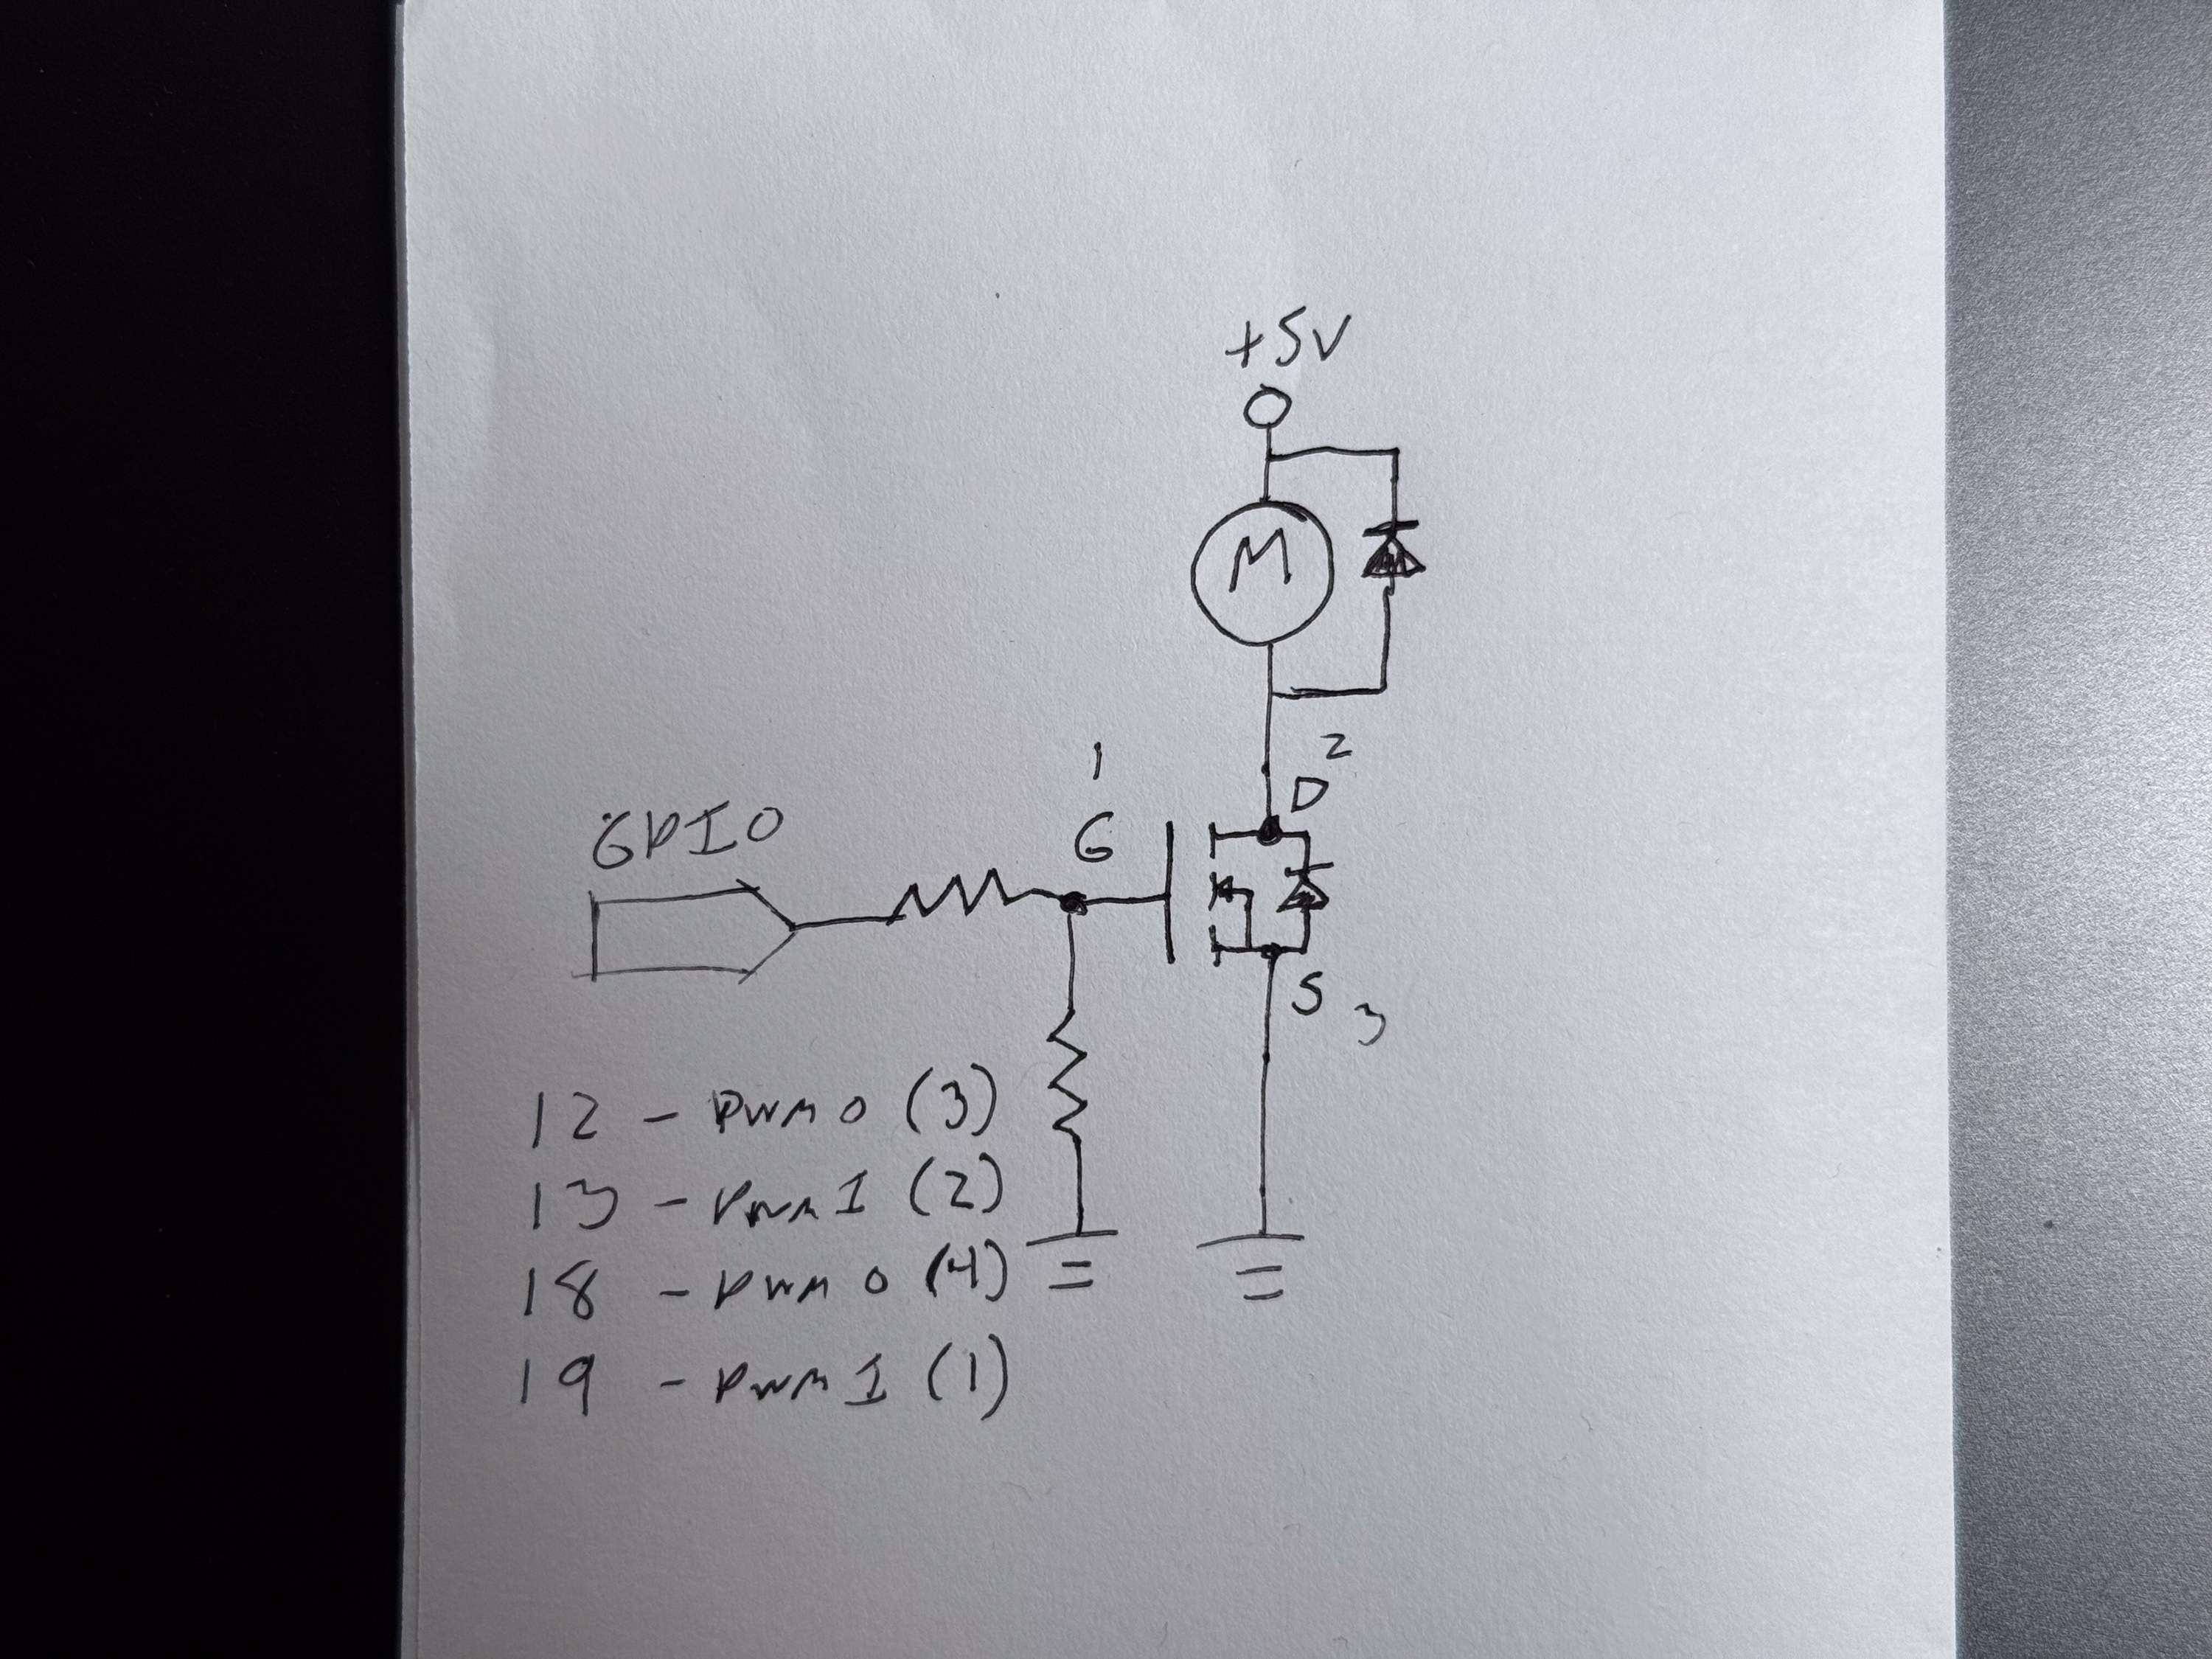 +5V
M
1
2
D
GPIO
G
S
3
12 - PWM 0 (3)
13 - PWM 1 (2)
18 - PWM 0 (4)
19 - PWM 1 (1)